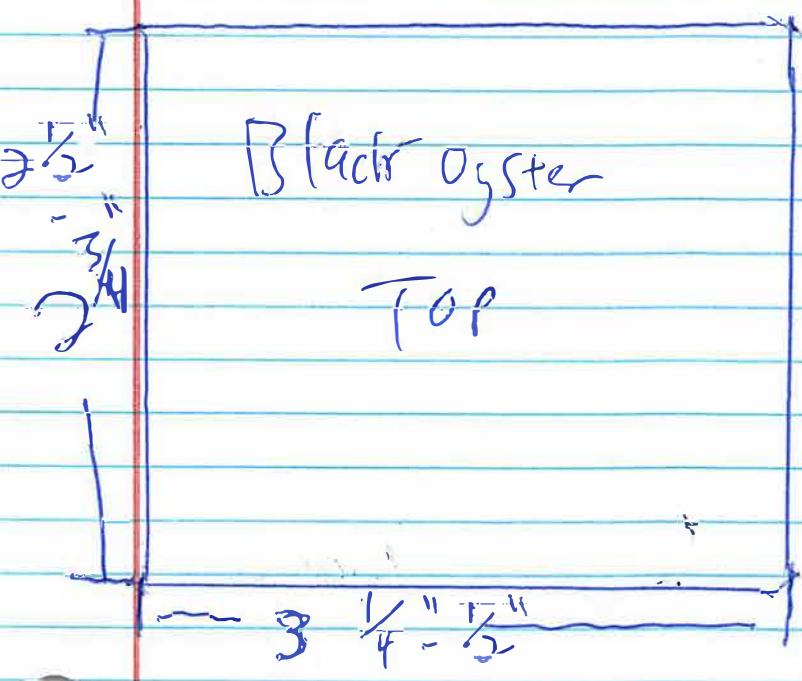 2 1/2"
- "
2 3/4
Black Oyster
Top
3 1/4" - 1/2"